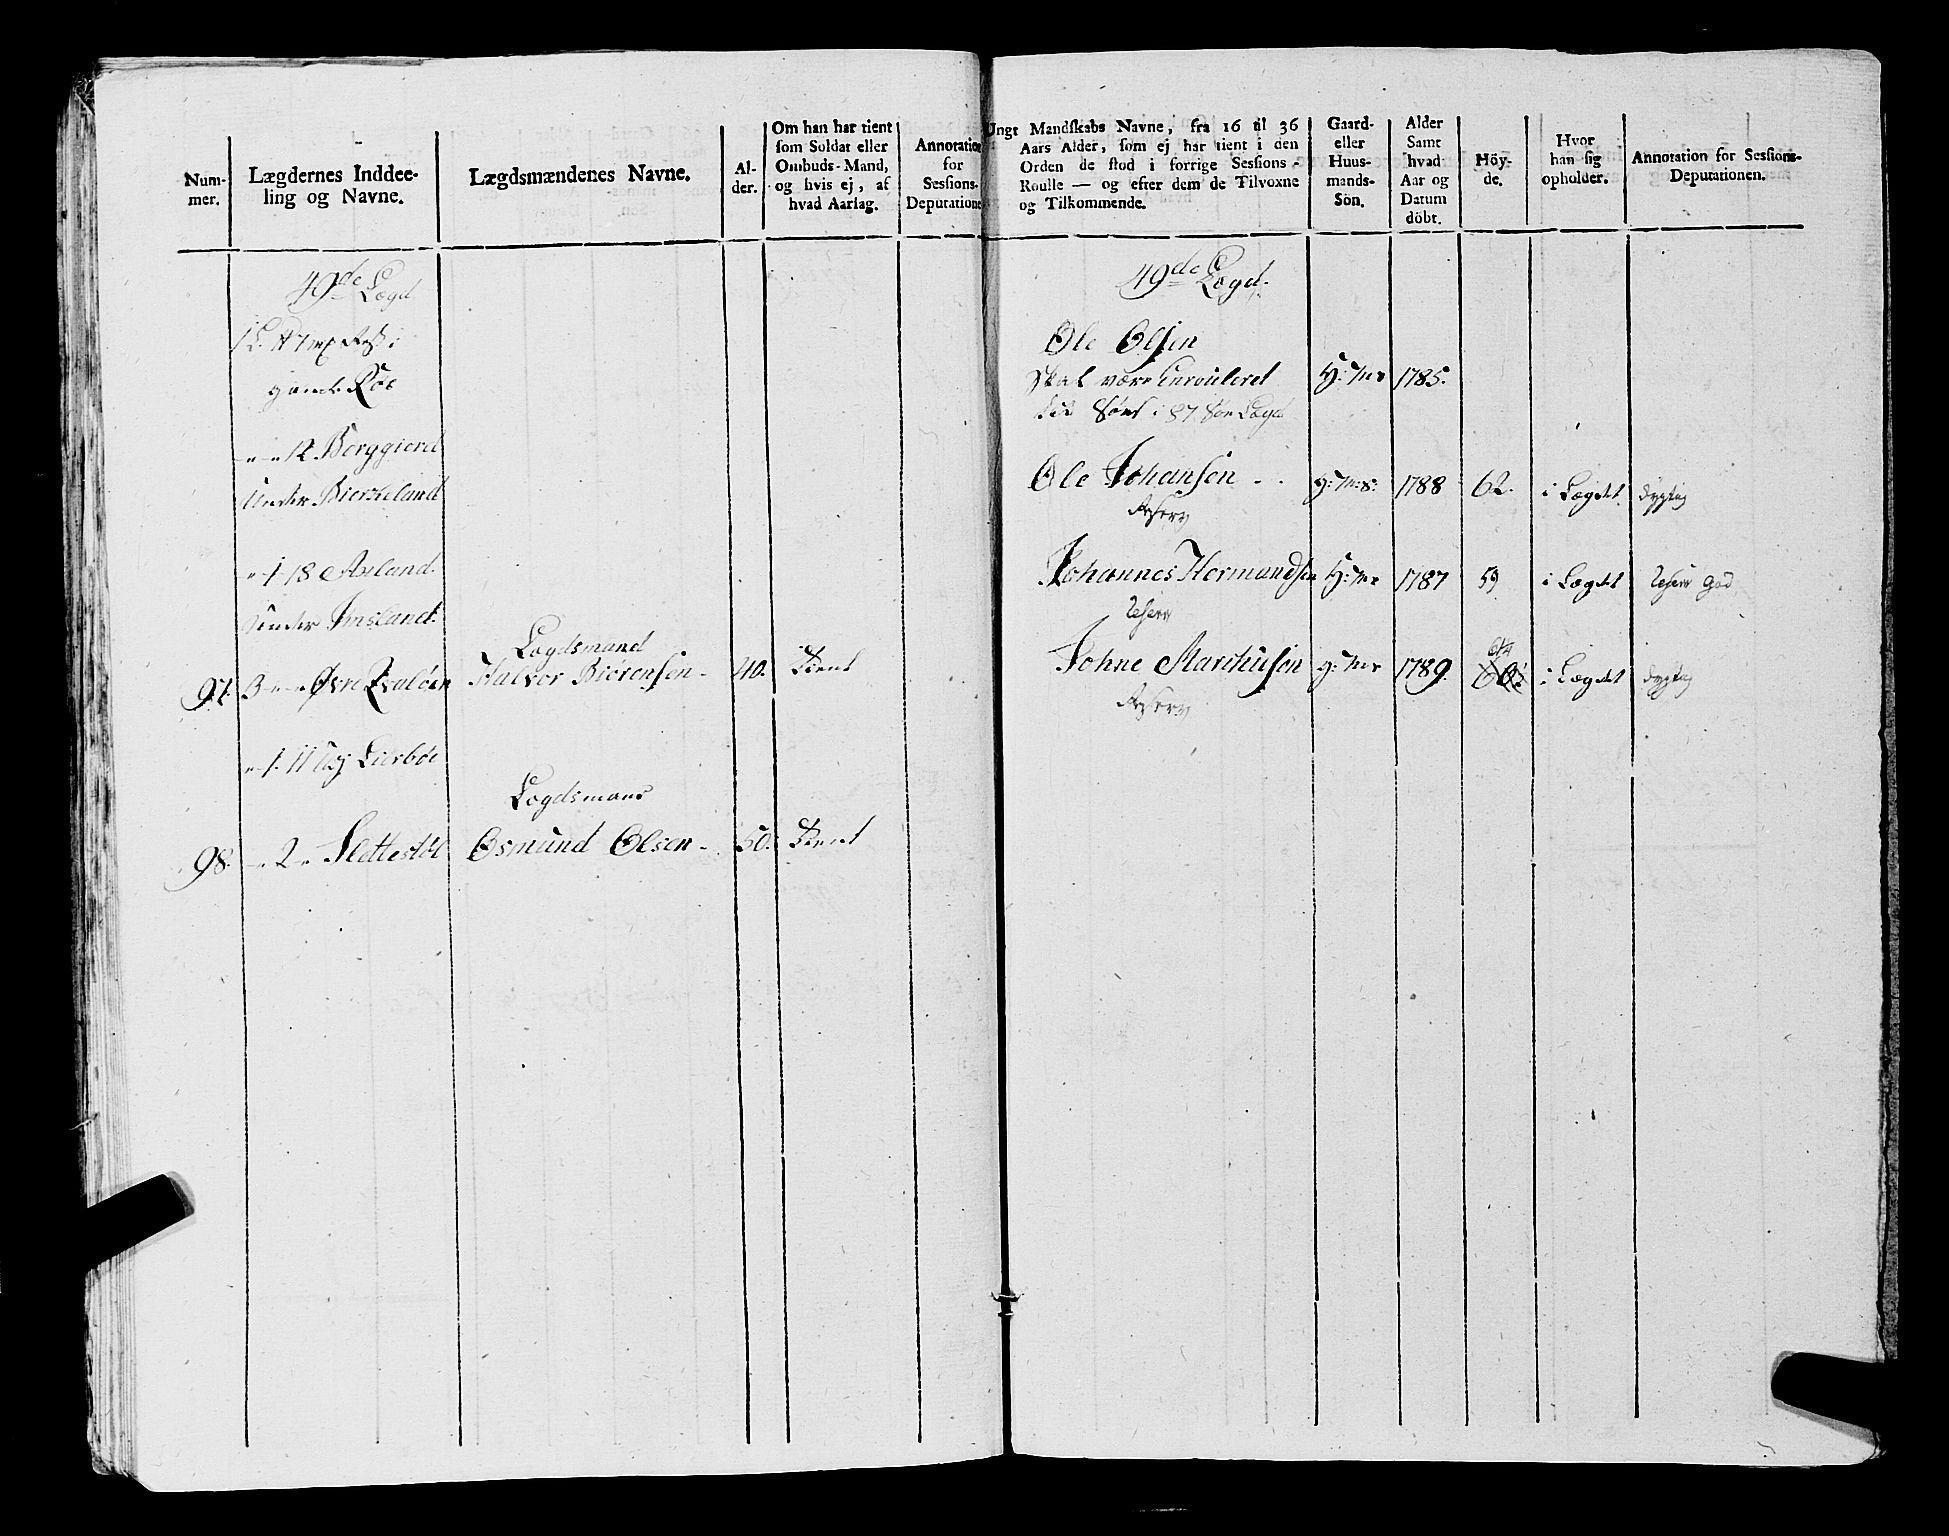 Num-
mer.
Lægdernes Inddee-
ling og Navne.
Lægdsmændenes Navne.
Al-
der.
Om han har tient
som Soldat eller
Ombuds-Mand,
og hvis ej, af
hvad Aarsag.
Annotation
for
Sessions-
Deputatione
49de Lægd
Røe
12 Berggierd
Under Bierkeland
1 18 Axland
Under Imsland
Lægdsmand
97. 3 Øvre Halvor Biørensen 40. tient
Lierbøe
Lægdsmand
98. 2 Slettestøl Osmund Olsen 50. tient
Ungt Mandskabs Navne, fra 16 til 36
Aars Alder, som ej har tient i den
Orden de stod i forrige Sessions-
Roulle — og efter dem de Tilvoxne
og Tilkommende.
Gaard-
eller
Huus-
mands-
Sön.
Alder
Samt
hvad
Aar og
Datum
döbt.
Höy-
de.
Hvor
han sig
opholder.
Annotation for Sessions-
Deputationen.
49de Lægd.
Ole Olsen
skal være Enroulleret 1785.
i 87 Lægd
Ole Johansen 1788 62. i Lægdet dygtig
Reserv
Johannes Hermandsen 1787 59 i Lægdet Reserv god
Reserv
Johne Marthuson 1789. i Lægdet dygtig
Reserv